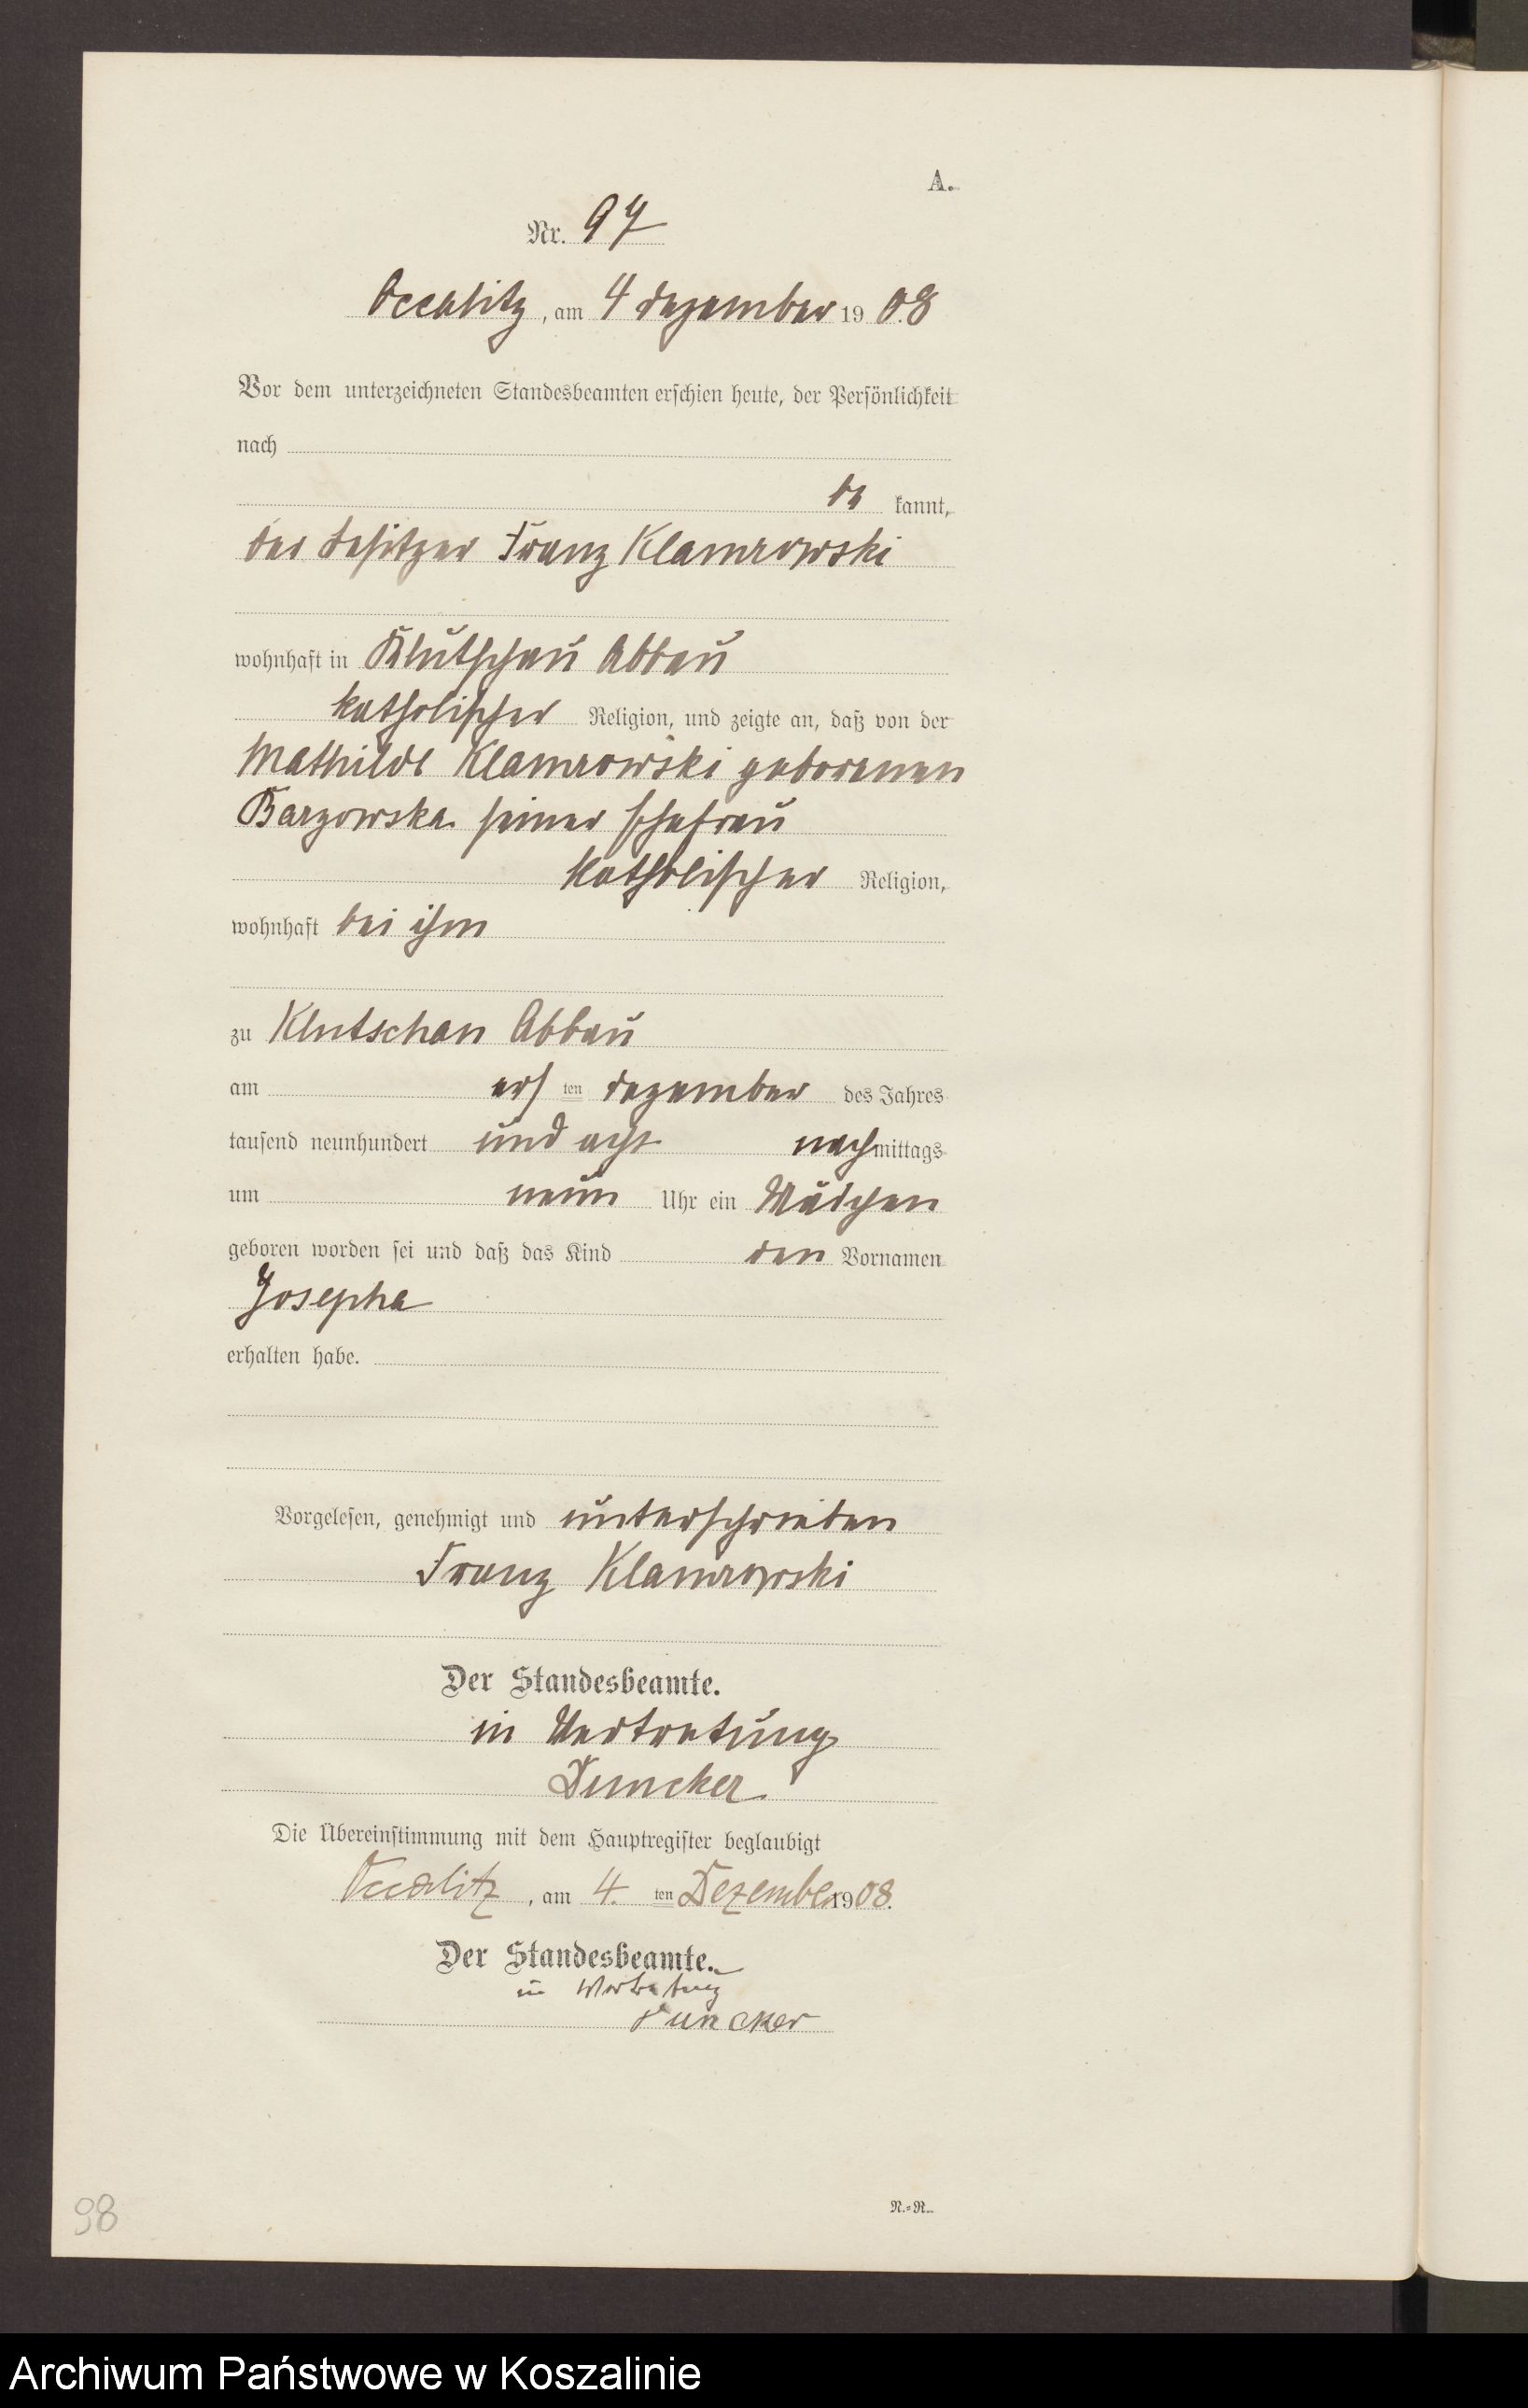 A.
Nr. 97
Occalitz, am 4 Dezember 1908
Vor dem unterzeichneten Standesbeamten erschien heute, der Persönlichkeit
nach
be kannt,
der Besitzer Franz Klamrowski
wohnhaft in Klutschau Abbau
katholischer Religion, und zeigte an, daß von der
Mathilde Klamrowski geborenen
Barzowska seiner Ehefrau
katholischer Religion,
wohnhaft bei ihm
zu Klutschau Abbau
am ersten Dezember des Jahres
tausend neunhundert und acht nachmittags
um neun Uhr ein Mädchen
geboren worden sei und daß das Kind den Vornamen
Josepha
erhalten habe.
Vorgelesen, genehmigt und unterschrieben
Franz Klamrowski
Der Standesbeamte.
in Vertretung
Duncker.
Die Übereinstimmung mit dem Hauptregister beglaubigt
Occalitz, am 4. ten Dezember 1908.
Der Standesbeamte.
in Vertretung
Duncker
98
N.=R.
Archiwum Państwowe w Koszalinie